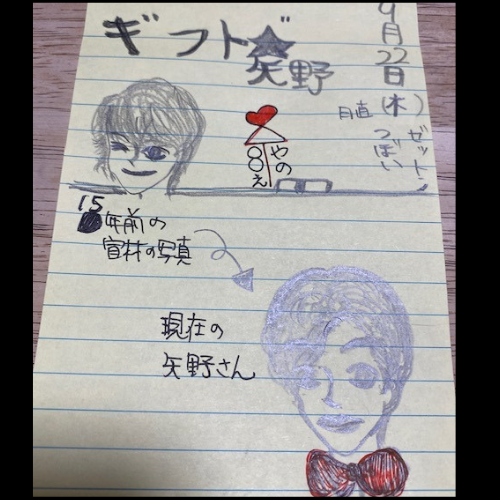 ギフト★
矢野
9月22日(木)
日直
ゼットン
つぼい
やの
8え
15年前の
宣材の写真
現在の
矢野さん